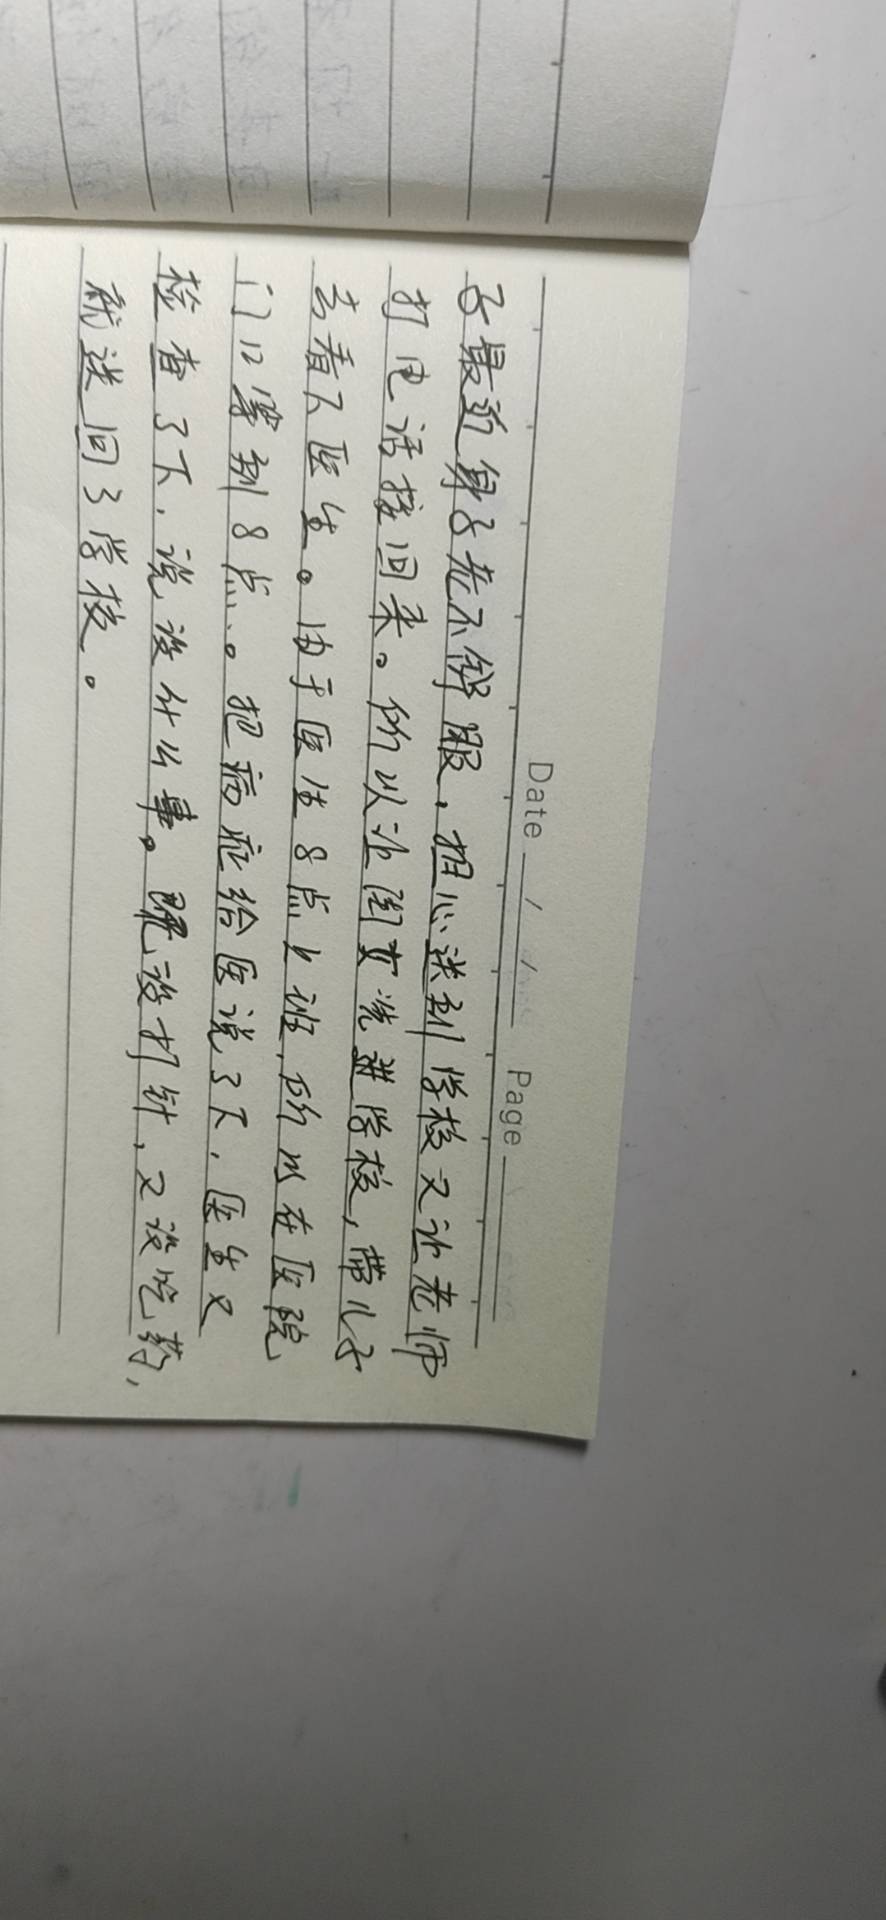 Date / / Page
子最近身子老不舒服，担心送到学校又让老师
打电话接回来。所以让闺女先进学校，带儿子
去看下医生。由于医生8点上班，所以在医院
门口等到8点。把病症给医说了下，医生又
检查了下，说没什么事。既没打针，又没吃药，
就送回了学校。